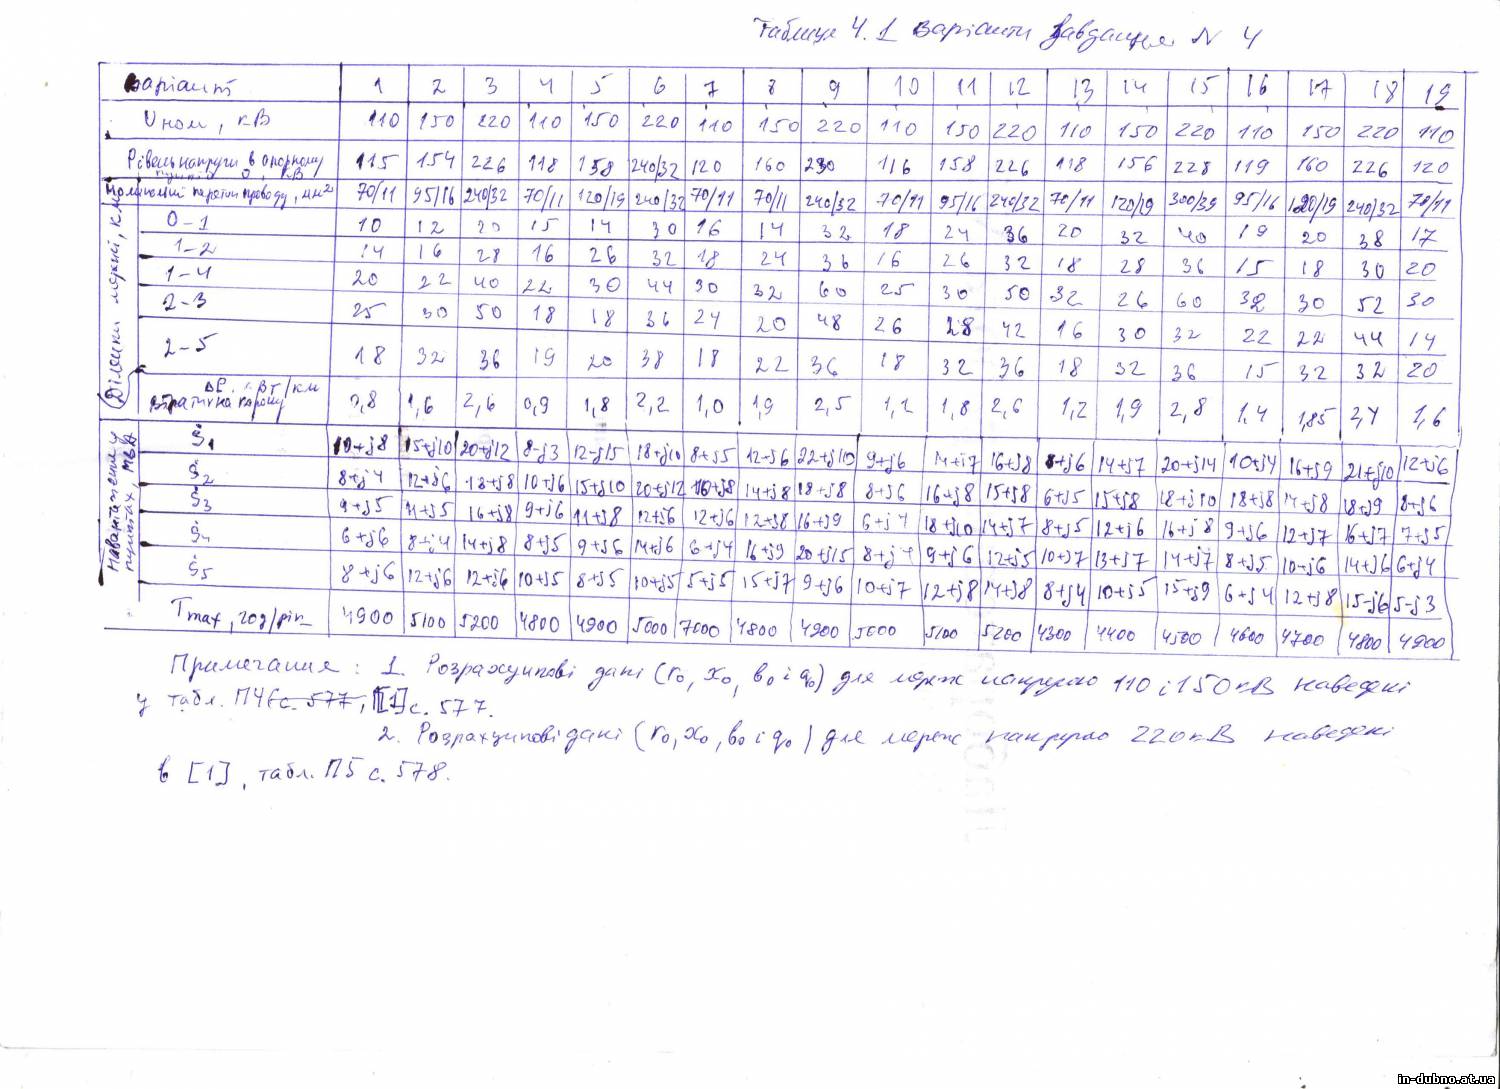 Таблиця 4.1 Варіанти Завдання N 4
Варіант 1 2 3 4 5 6 7 8 9 10 11 12 13 14 15 16 17 18 19
Uном, кВ 110 150 220 110 150 220 110 150 220 110 150 220 110 150 220 110 150 220 110
Рівень напруги в опорному пункті 0, кВ 115 154 226 118 158 240/32 120 160 230 116 158 226 118 156 228 119 160 226 120
Номінальний переріз проводу, мм² 70/11 95/16 240/32 70/11 120/19 240/32 70/11 70/11 240/32 70/11 95/16 240/32 70/11 120/19 300/39 95/16 120/19 240/32 70/11
Ділянки мережі, км
0-1 10 12 20 15 14 30 16 14 32 18 24 36 20 32 40 19 20 38 17
1-2 14 16 28 16 26 32 18 24 36 16 26 32 18 28 36 15 18 30 20
1-4 20 22 40 22 30 44 30 32 60 25 30 50 32 26 60 32 30 52 30
2-3 25 30 50 18 18 36 24 20 48 26 28 42 16 30 32 22 22 44 14
2-5 18 32 36 19 20 38 18 22 36 18 32 36 18 32 36 15 32 32 20
ΔP, кВт/км
втрати на корону 0,8 1,6 2,6 0,9 1,8 2,2 1,0 1,9 2,5 1,1 1,8 2,6 1,2 1,9 2,8 1,4 1,85 2,7 1,6
Навантаження у пунктах, МВА
Ṡ1 10+j8 15+j10 20+j12 8-j3 12-j15 18+j10 8+j5 12-j6 22+j10 9+j6 14+j7 16+j8 8+j6 14+j7 20+j14 10+j4 16+j9 21+j10 12+j6
Ṡ2 8+j4 12+j6 18+j8 10+j6 15+j10 20+j12 10+j8 14+j8 18+j8 8+j6 16+j8 15+j8 6+j5 15+j8 18+j10 18+j8 14+j8 18+j9 8+j6
Ṡ3 9+j5 11+j5 16+j8 9+j6 11+j8 12+j6 12+j6 12+j8 16+j9 6+j4 18+j10 14+j7 8+j5 12+j6 16+j8 9+j6 12+j7 16+j7 7+j5
Ṡ4 6+j6 8+j4 14+j8 8+j5 9+j6 14+j6 6+j4 16+j9 20+j15 8+j4 9+j6 12+j5 10+j7 13+j7 14+j7 8+j5 10+j6 14+j6 6+j4
Ṡ5 8+j6 12+j6 12+j6 10+j5 8+j5 10+j5 5+j5 15+j7 9+j6 10+j7 12+j8 14+j8 8+j4 10+j5 15+j9 6+j4 12+j8 15-j6 5-j3
Tmax, год/рік 4900 5100 5200 4800 4900 5000 7000 4800 4900 5000 5100 5200 4300 4400 4500 4600 4700 4800 4900
Примечания: 1. Розрахункові дані (r₀, x₀, b₀ і q₀) для мереж напругою 110 і 150 кВ наведені
у табл. П4 (с. 577, [1] с. 577.
2. Розрахункові дані (r₀, x₀, b₀ і q₀) для мереж напругою 220 кВ наведені
в [1], табл. П5 с. 578.
in-dubno.at.ua